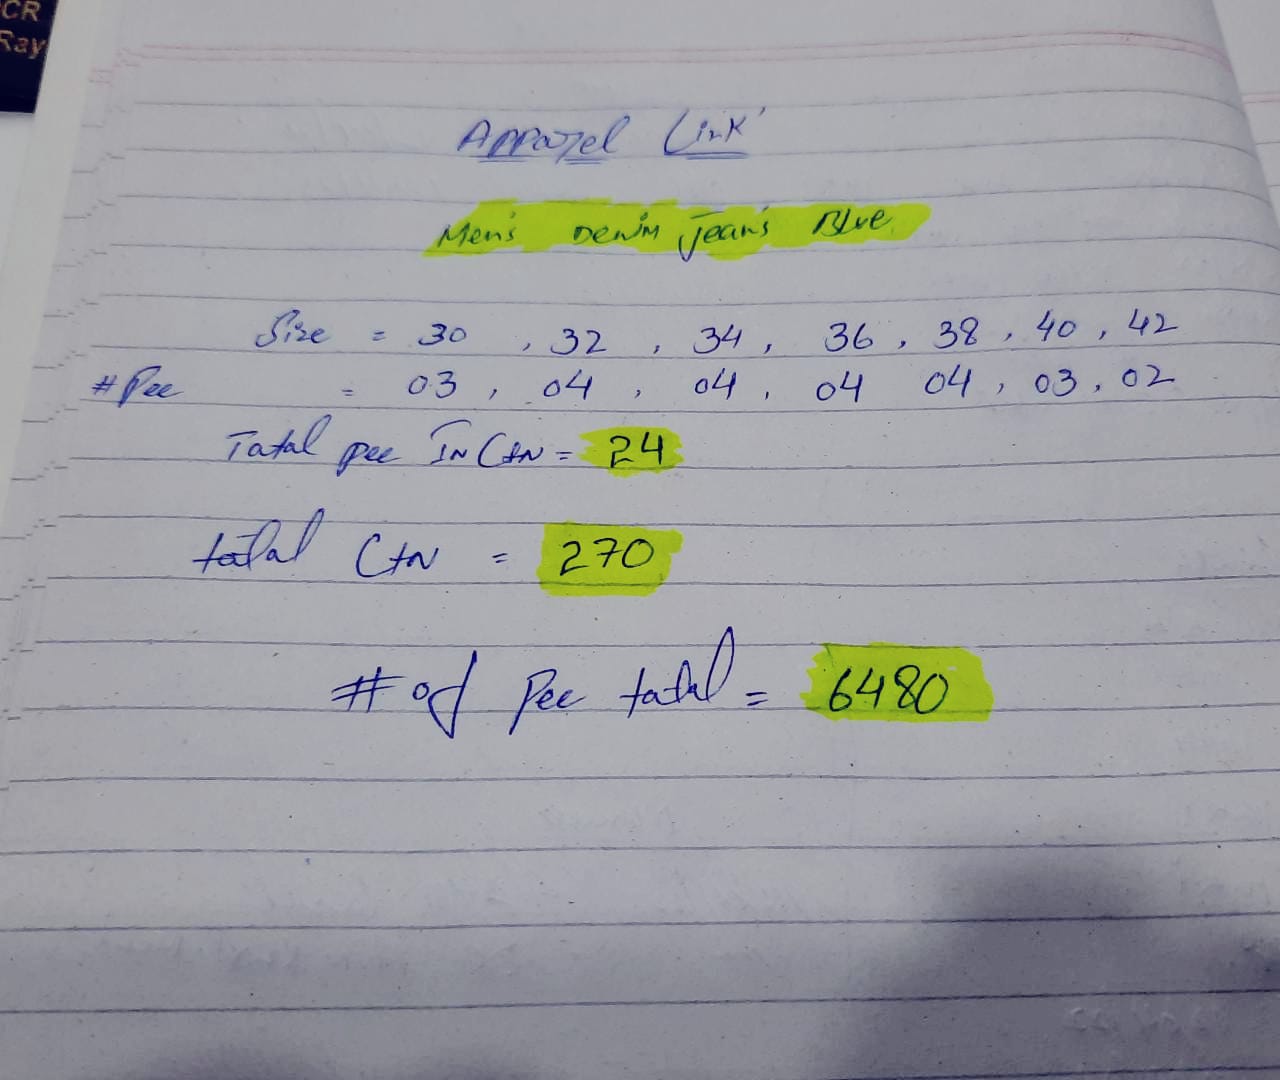 CR
Ray
Apparel Link
Men's Denim Jean's Blue
Size = 30 , 32 , 34 , 36 , 38 , 40 , 42
# Pce = 03 , 04 , 04 , 04 04 , 03 , 02
Total pce In Ctn = 24
total Ctn = 270
# of Pce total = 6480